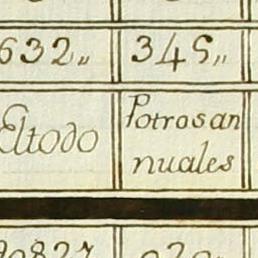 632,, 345,,
El todo Potros an
nuales